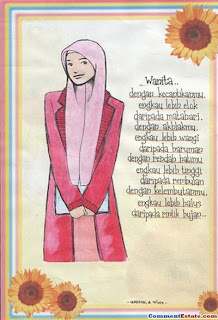 Wanita..
dengan kecantikanmu
engkau lebih elok
daripada matahari.
dengan akhlakmu
engkau lebih wangi
daripada haruman
dengan rendah hatimu
engkau lebih tinggi
daripada rembulan
dengan kelembutanmu
engkau lebih halus
daripada rintik hujan..
CommentEstate.com